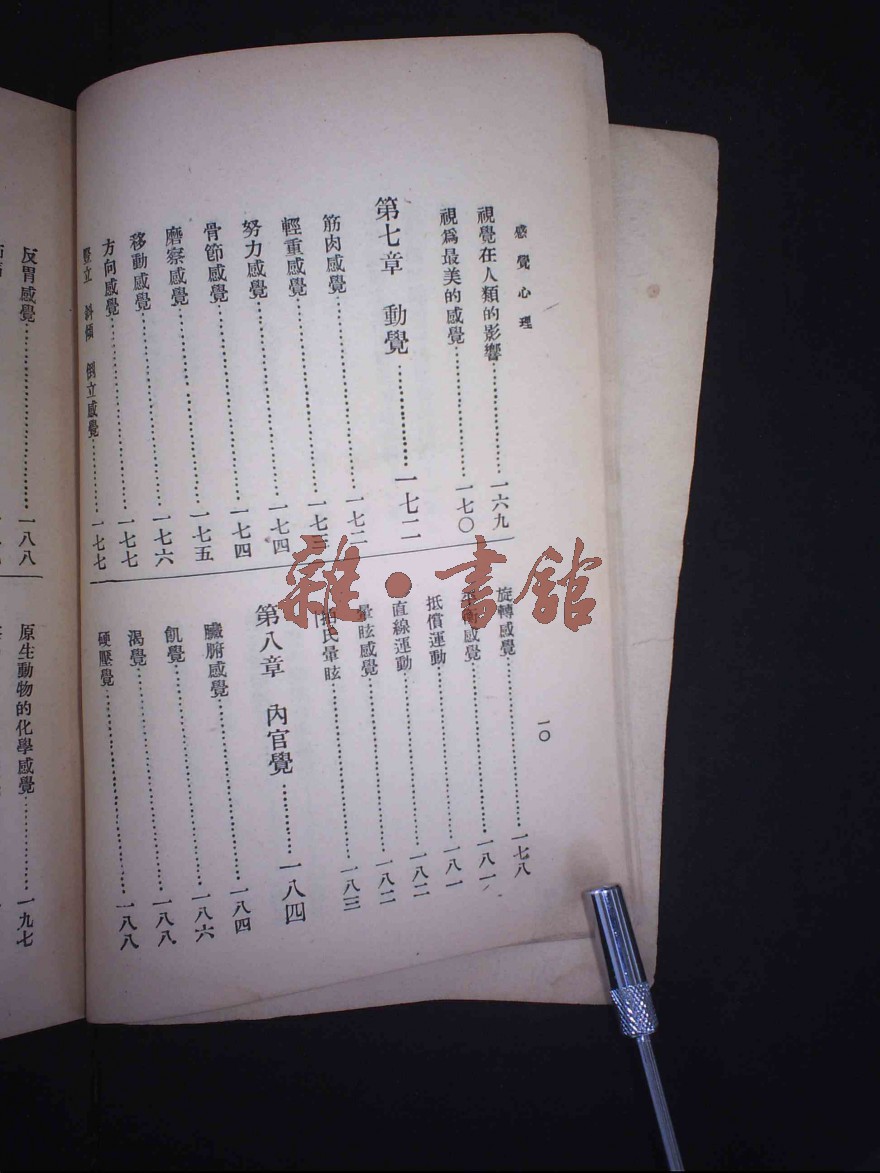 感覺心理
視覺在人類的影響……………一六九
視爲最美的感覺……………一七〇
第七章 動覺……………一七二
筋肉感覺……………一七二
輕重感覺……………一七三
努力感覺……………一七四
骨節感覺……………一七四
磨察感覺……………一七五
移動感覺……………一七六
方向感覺……………一七七
豎立 斜傾 倒立感覺……………一七七
一〇
旋轉感覺……………一七八
感覺……………一八一
抵償運動……………一八一
直線運動……………一八二
暈眩感覺……………一八二
氏暈眩……………一八三
第八章 內官覺……………一八四
臟腑感覺……………一八四
飢覺……………一八六
渴覺……………一八八
硬壓覺……………一八八
反胃感覺……………一八八
原生動物的化學感覺……………一九七
雜·書舘